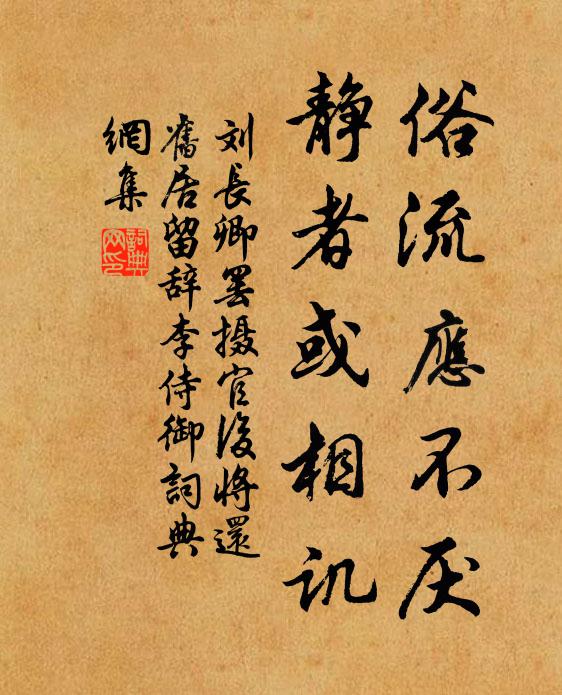 俗流應不厌
静者或相讥
刘長卿罢摄官後將還
舊居留辞李侍御詞典
網集
詞典网印